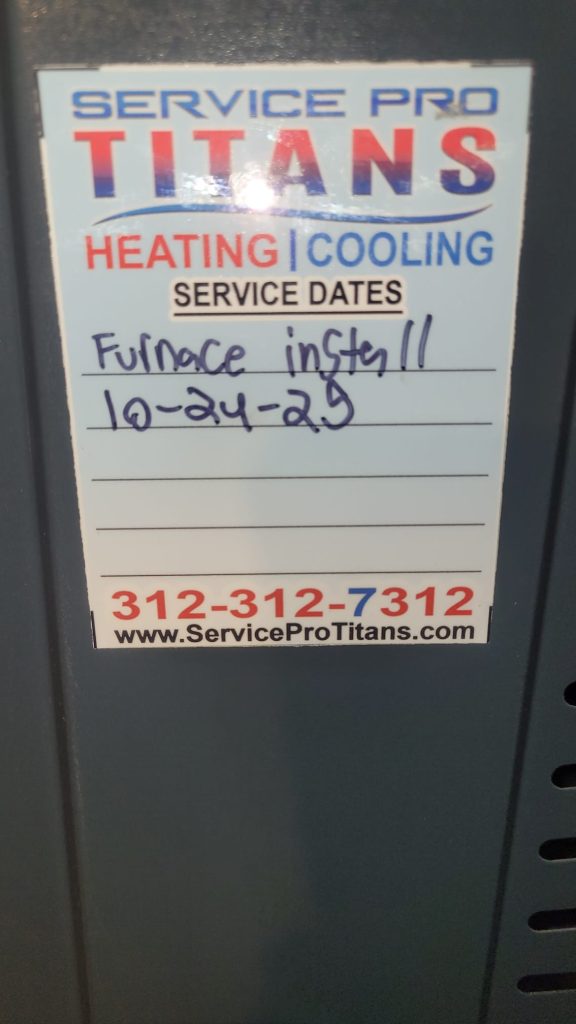 SERVICE PRO
TITANS
HEATING | COOLING
SERVICE DATES
Furnace install
312-312-7312
www.ServiceProTitans.com